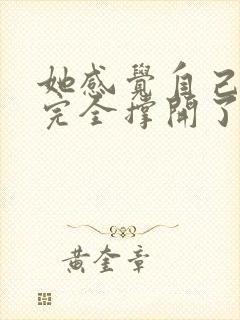 她感覺自己
完全撐開了
黃奎章